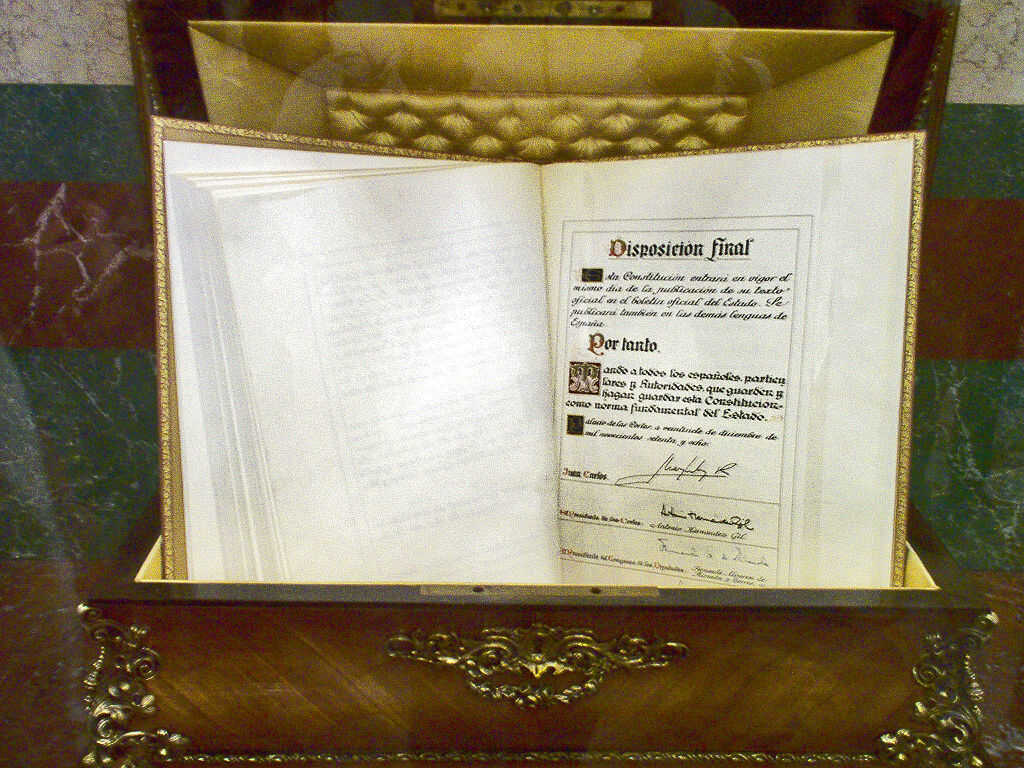 Disposición final
Esta Constitución entrará en vigor el
mismo día de la publicación de su texto
oficial en el boletín oficial del Estado. Se
publicará también en las demás lenguas de
España.
Por tanto,
Mando a todos los españoles, particu
lares y Autoridades, que guarden y
hagan guardar esta Constitución
como norma fundamental del Estado.
Palacio de las Cortes, a veintisiete de diciembre de
mil novecientos setenta y ocho.
Juan Carlos
El Presidente de las Cortes
Antonio Hernandez Gil
El Presidente del Congreso de los Diputados
Fernando Alvarez de
Miranda y Torres